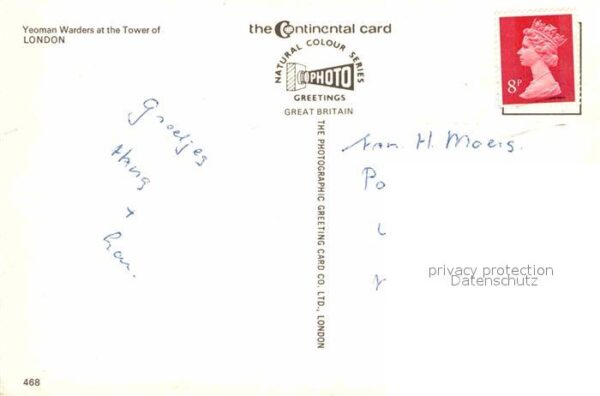 Yeoman Warders at the Tower of
LONDON
the Continental card
NATURAL COLOUR SERIES
PHOTO
GREETINGS
GREAT BRITAIN
8P
Groetjes
+
THE PHOTOGRAPHIC GREETING CARD CO. LTD., LONDON
Fam. H. Moers.
Po
L
privacy protection
Datenschutz
468